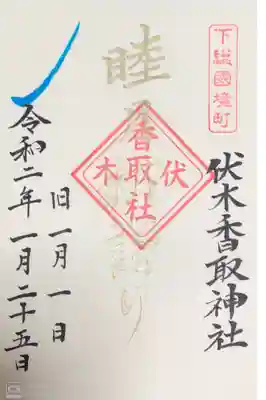 下総國境町
伏木香取神社
睦月
詣り
伏木
香取社
旧一月一日
令和二年一月二十五日